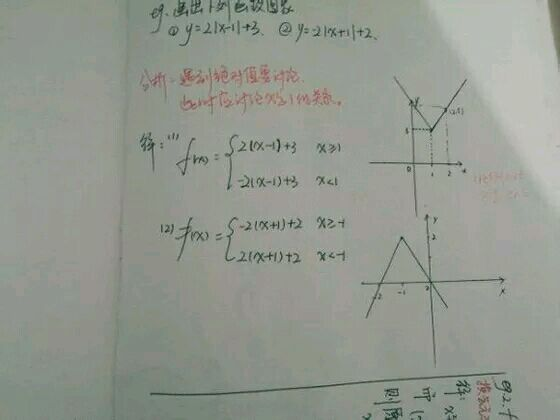 eg. 画出下列函数图象
① y=2|x-1|+3. ② y=-2|x+1|+2.
分析: 遇到绝对值要讨论.
此时应讨论x与1的关系。
解: (1) f(x)= { 2(x-1)+3 x≥1
-2(x-1)+3 x<1
(2) f(x)= { -2(x+1)+2 x≥-1
2(x+1)+2 x<-1
y
(2,5)
3
0 1 2 x
y
2
-2 -1 x
eg2.